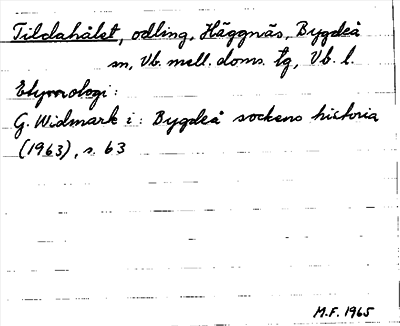 Tildahålet, odling, Häggnäs, Bygdeå
sn, Vb. mell. doms. tg, Vb. l.
Etymologi:
G. Widmark i: Bygdeå sockens historia
(1963), s. 63
M.F. 1965